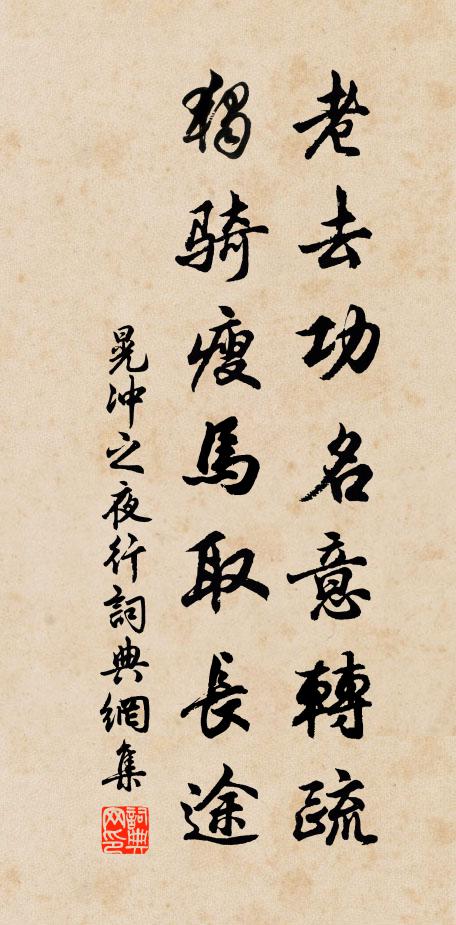 老去功名意轉疏
獨騎瘦馬取長途
晁冲之夜行詞典網集
詞典网印